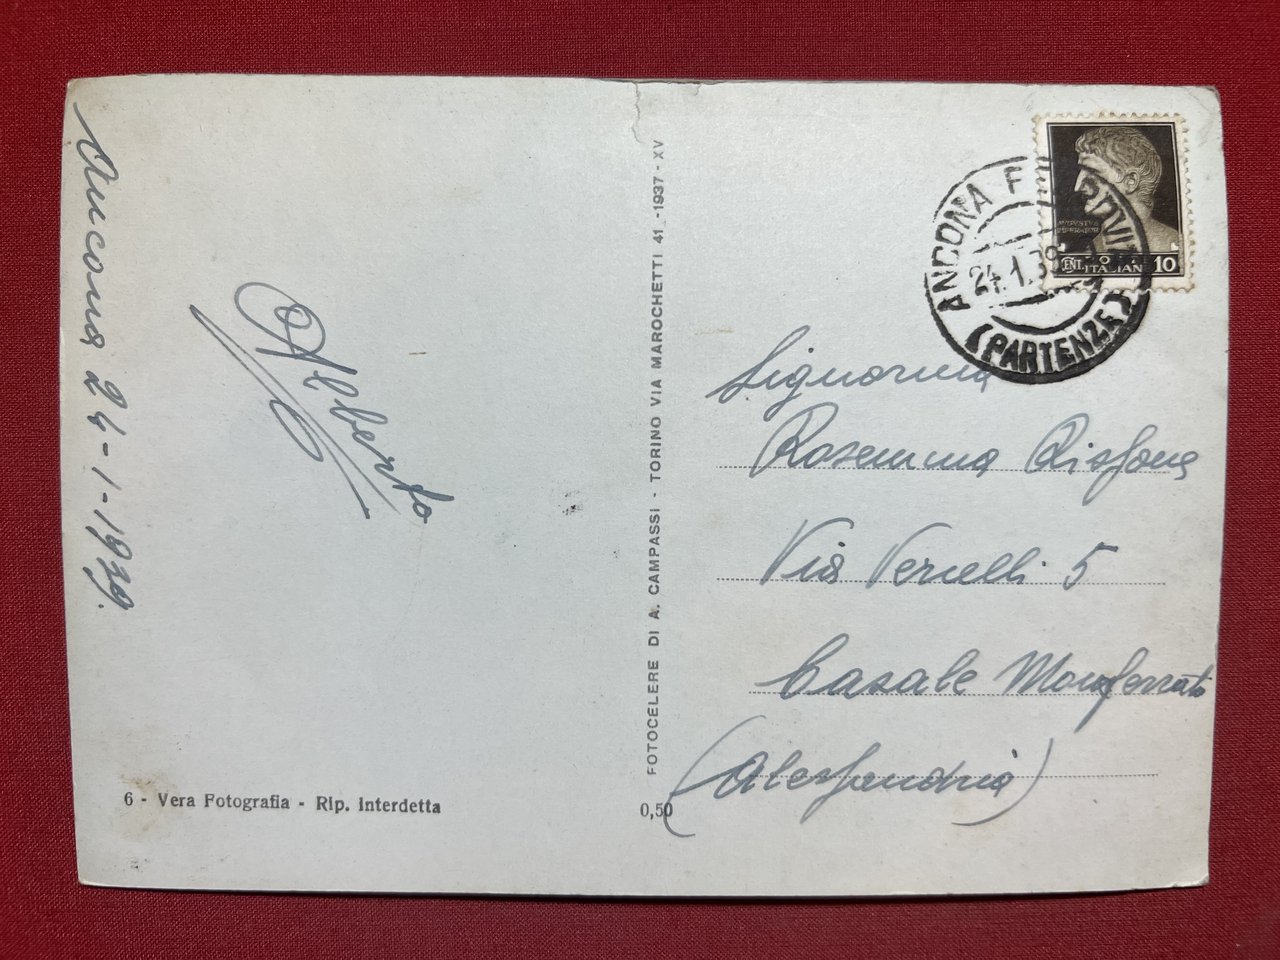 Ancona 24-1-1939.
Alberto
6 - Vera Fotografia - Rip. Interdetta
FOTOCELERE DI A. CAMPASSI - TORINO VIA MAROCHETTI 41 -1937 - XV
0,50
ANCONA
24.1.39
(PARTENZE)
CENT. 10
ITALIANE
Signorina
Rosemma
Via Vercelli 5
Casale Monferrato
(Alessandria)